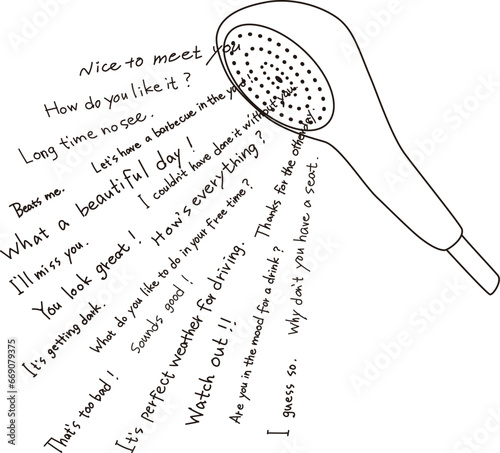 Nice to meet you
How do you like it?
Long time no see.
Let's have a barbecue in the yard!
What a beautiful day!
Beats me.
I couldn't have done it without you.
I'll miss you.
How's everything?
You look great!
Thanks for the other day.
What do you like to do in your free time?
It's getting dark.
Sounds good!
It's perfect weather for driving.
Why don't you have a seat.
That's too bad!
Watch out!!
Are you in the mood for a drink?
I guess so.
Adobe Stock
Adobe Stock
Adobe Stock | #669079375